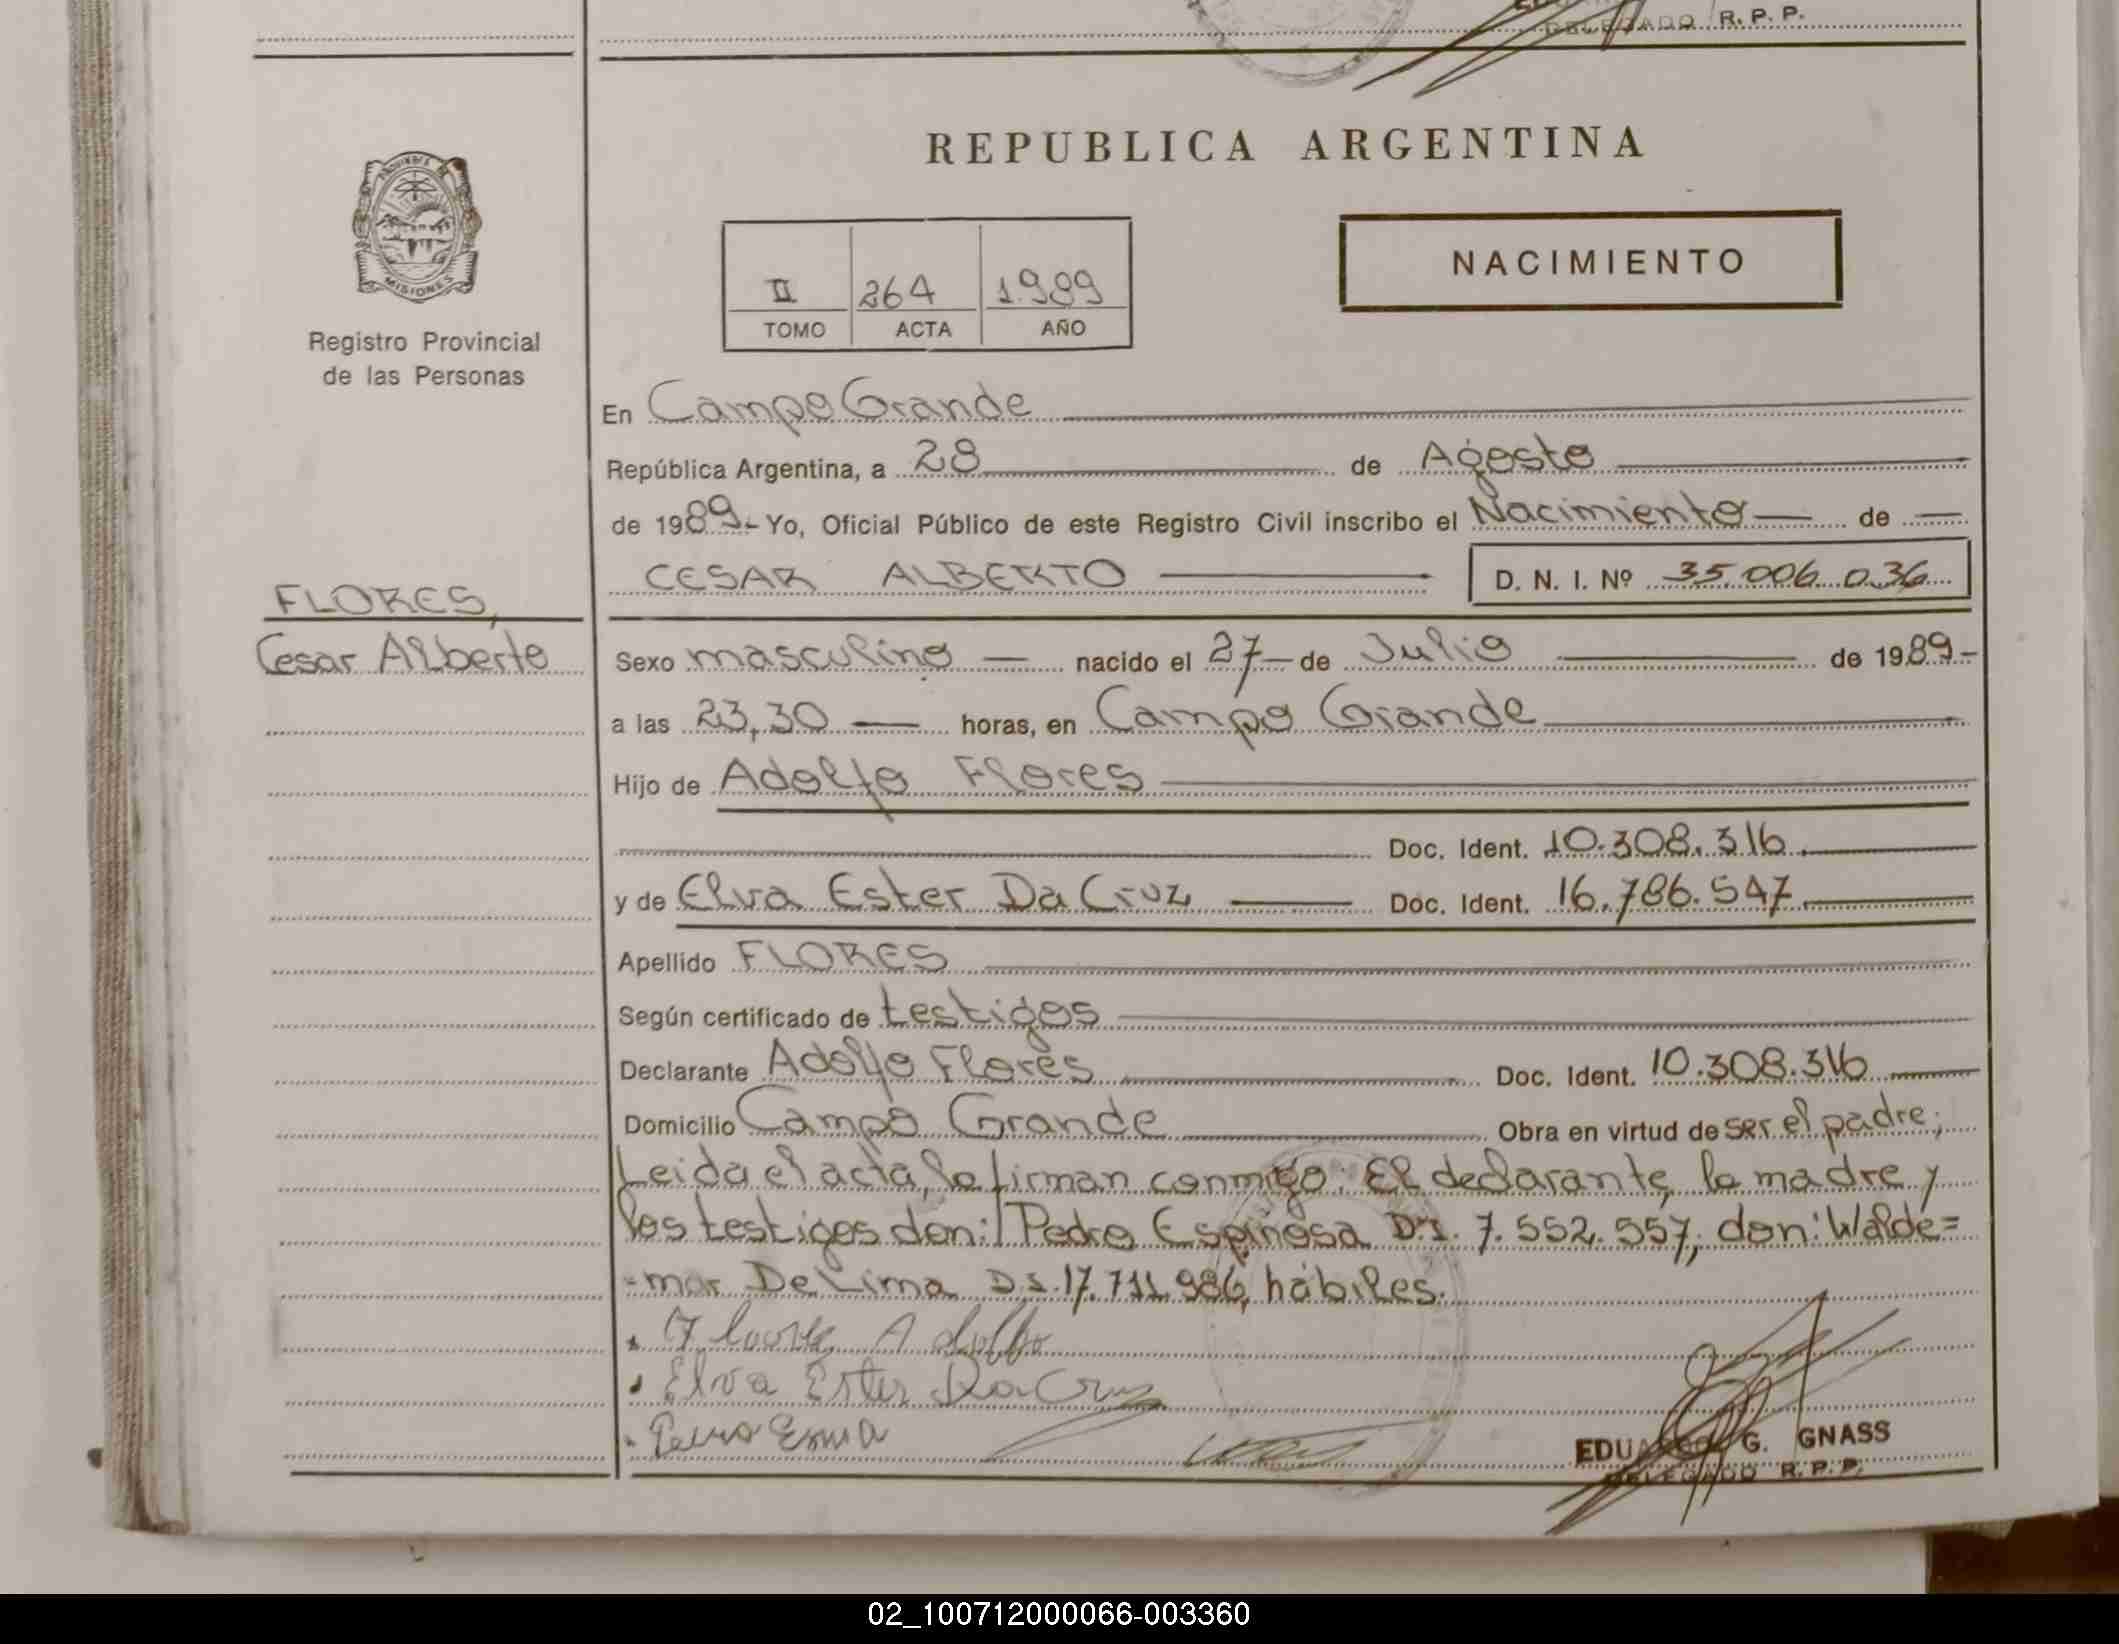 DELEGADO R. P. P.
REPUBLICA ARGENTINA
PROVINCIA DE
MISIONES
Registro Provincial
de las Personas
NACIMIENTO
II 264 1.989
TOMO ACTA AÑO
En Campo Grande
República Argentina, a 28 de Agosto
de 1989.- Yo, Oficial Público de este Registro Civil inscribo el Nacimiento de
CESAR ALBERTO D. N. I. Nº 35.006.036
FLORES,
Cesar Alberto
Sexo masculino nacido el 27 de Julio de 1989-
a las 23,30 horas, en Campo Grande
Hijo de Adolfo Flores
Doc. Ident. 10.308.316.
y de Elva Ester Da Cruz Doc. Ident. 16.786.547.
Apellido FLORES
Según certificado de testigos
Declarante Adolfo Flores Doc. Ident. 10.308.316
Domicilio Campo Grande Obra en virtud de ser el padre;
Leida el acta, la firman conmigo: El declarante, la madre y
los testigos don: Pedro Espinosa D.I. 7.552.557, don: Walde=
=mar De Lima D.I. 17.711.986, hábiles.
Adolfo
Elva Ester Da Cruz
EDUARDO G. GNASS
DELEGADO R. P. P.
02_100712000066-003360